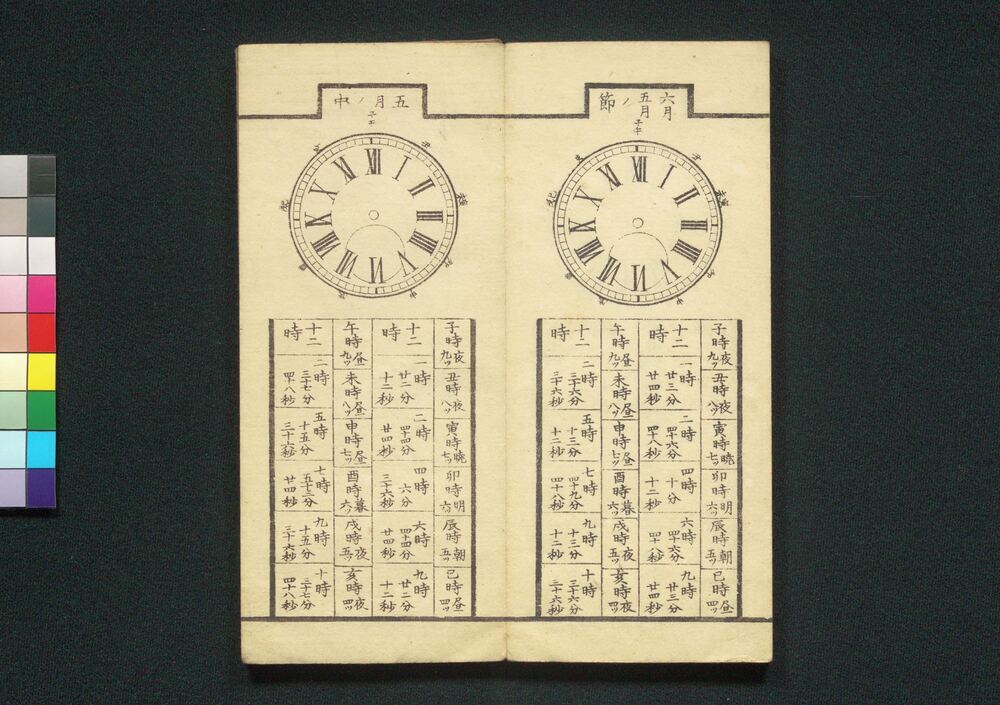 六月
五月
ノ
節
子午
XII
I
II
III
IIII
V
VI
VII
VIII
IX
X
XI
子時夜九ツ
丑時夜八ツ
寅時暁七ツ
卯時明六ツ
辰時朝五ツ
巳時昼四ツ
十二時
一時廿三分廿四秒
二時四十六分四十八秒
四時十分十二秒
六時四十六分四十八秒
九時廿三分廿四秒
午時昼九ツ
未時昼八ツ
申時昼七ツ
酉時暮六ツ
戌時夜五ツ
亥時夜四ツ
十二時
二時三十六分三十六秒
五時十三分十二秒
七時四十九分四十八秒
九時十三分十二秒
十時三十六分三十六秒
五月ノ中
子午
XII
I
II
III
IIII
V
VI
VII
VIII
IX
X
XI
子時夜九ツ
丑時夜八ツ
寅時暁七ツ
卯時明六ツ
辰時朝五ツ
巳時昼四ツ
十二時
一時廿二分十二秒
二時四十四分廿四秒
四時六分三十六秒
六時四十四分廿四秒
九時廿二分十二秒
午時昼九ツ
未時昼八ツ
申時昼七ツ
酉時暮六ツ
戌時夜五ツ
亥時夜四ツ
十二時
二時三十七分四十八秒
五時十五分三十六秒
七時五十三分廿四秒
九時十五分三十六秒
十時三十七分四十八秒